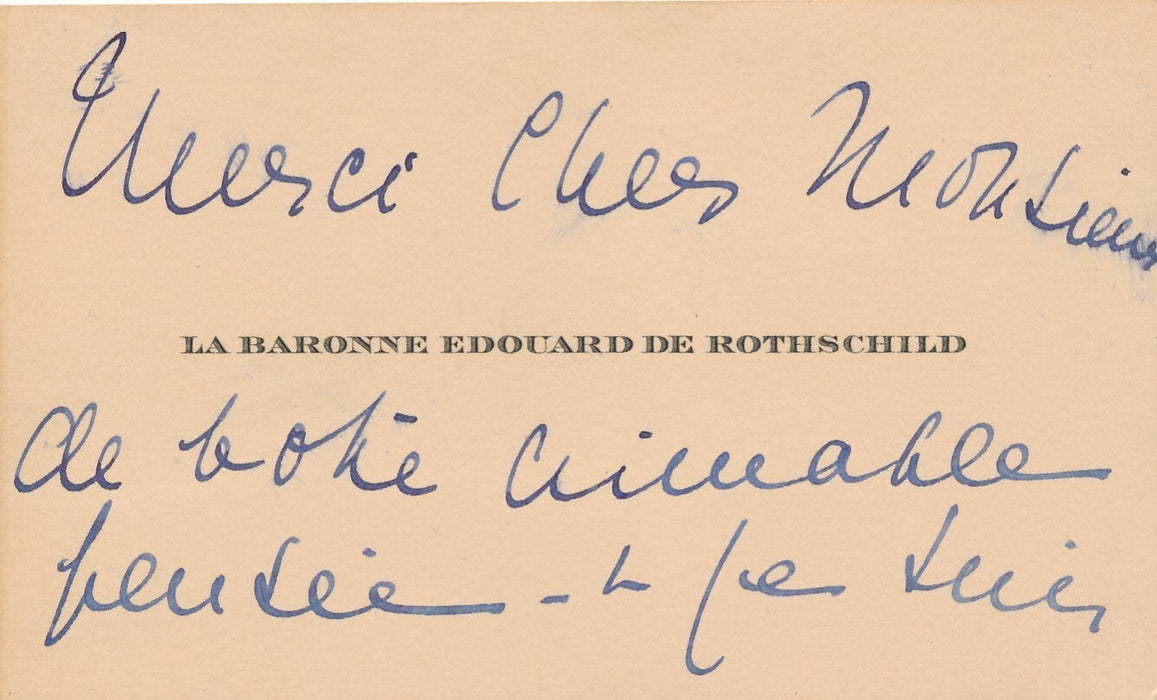 Merci Cher Monsieur
LA BARONNE EDOUARD DE ROTHSCHILD
de votre aimable
pensée - et je suis